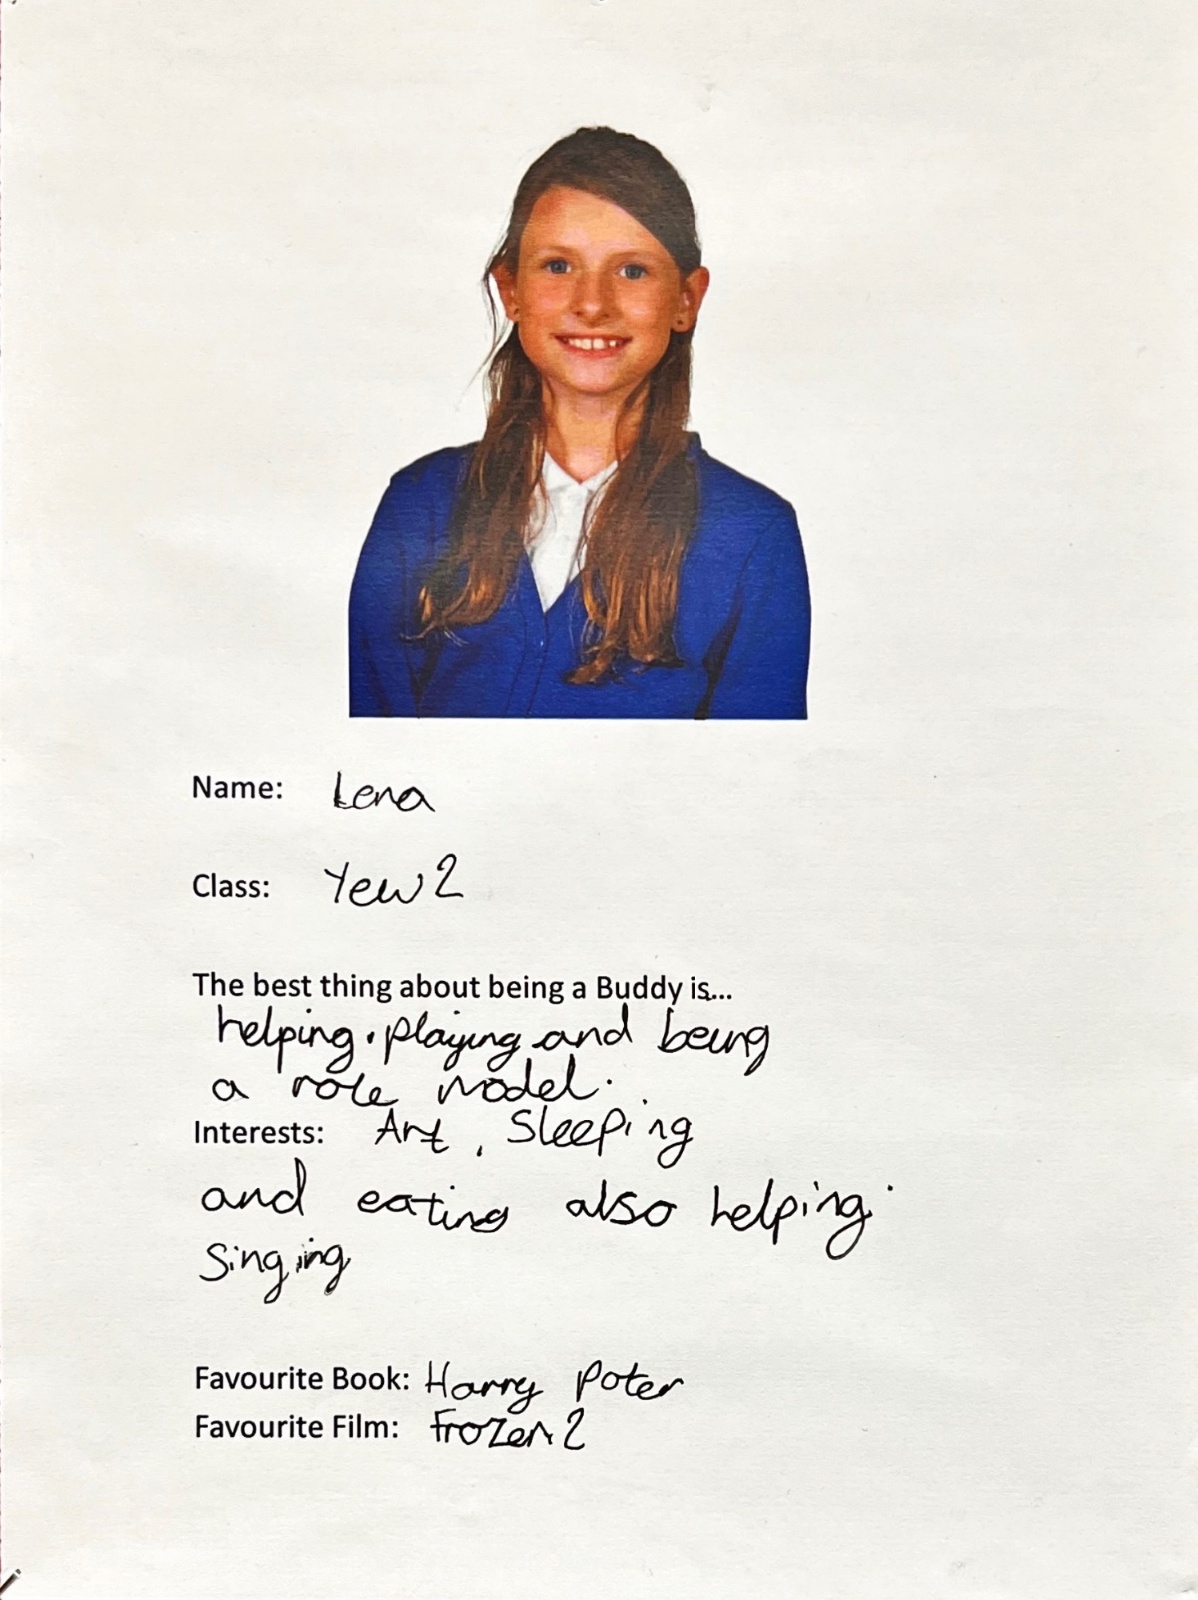 Name: Lena
Class: Yew 2
The best thing about being a Buddy is...
helping. playing and being
a role model.
Interests: Art, Sleeping
and eating also helping.
Singing
Favourite Book: Harry Poter
Favourite Film: Frozen 2